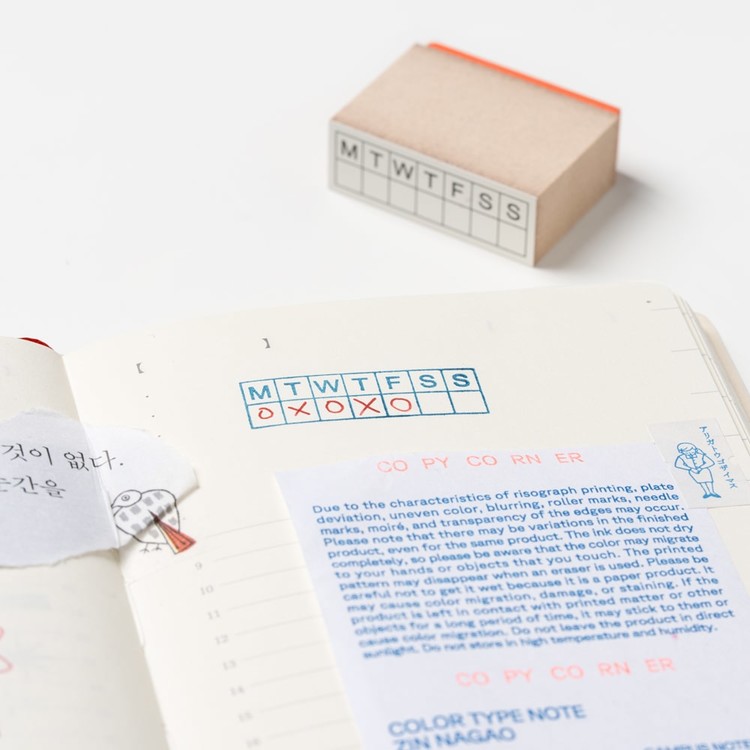 M T W T F S S
M T W T F S S
O X O X O
것이 없다.
순간을
COPY CORNER
Due to the characteristics of risograph printing, plate
deviation, uneven color, blurring, roller marks, needle
marks, moiré, and transparency of the edges may occur.
Please note that there may be variations in the finished
product, even for the same product. The ink does not dry
completely, so please be aware that the color may migrate
to your hands or objects that you touch. The printed
pattern may disappear when an eraser is used. Please be
careful not to get it wet because it is a paper product. It
may cause color migration, damage, or staining. If the
product is left in contact with printed matter or other
objects for a long period of time, it may stick to them or
cause color migration. Do not leave the product in direct
sunlight. Do not store in high temperature and humidity.
COPY CORNER
COLOR TYPE NOTE
ZIN NAGAO
9
10
11
12
13
14
15
16